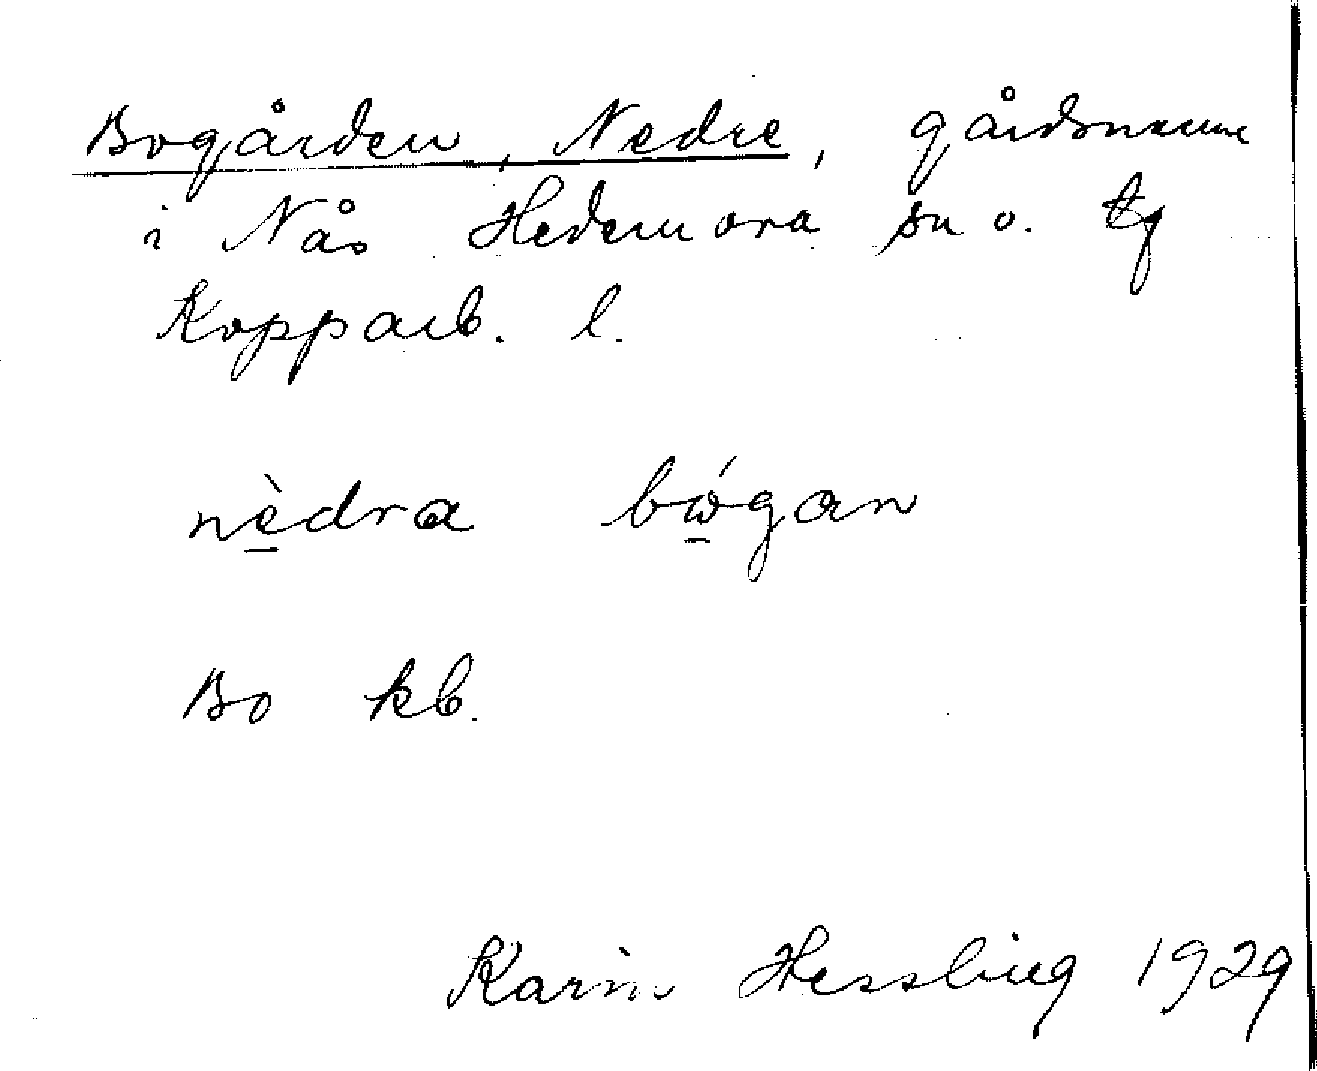 Bogården, Nedre, gårdsnamn
i Nås Hedemora sn o. tg
Kopparb. l.
nèdra bǿgan
Bo kb.
Karin Hessling 1929